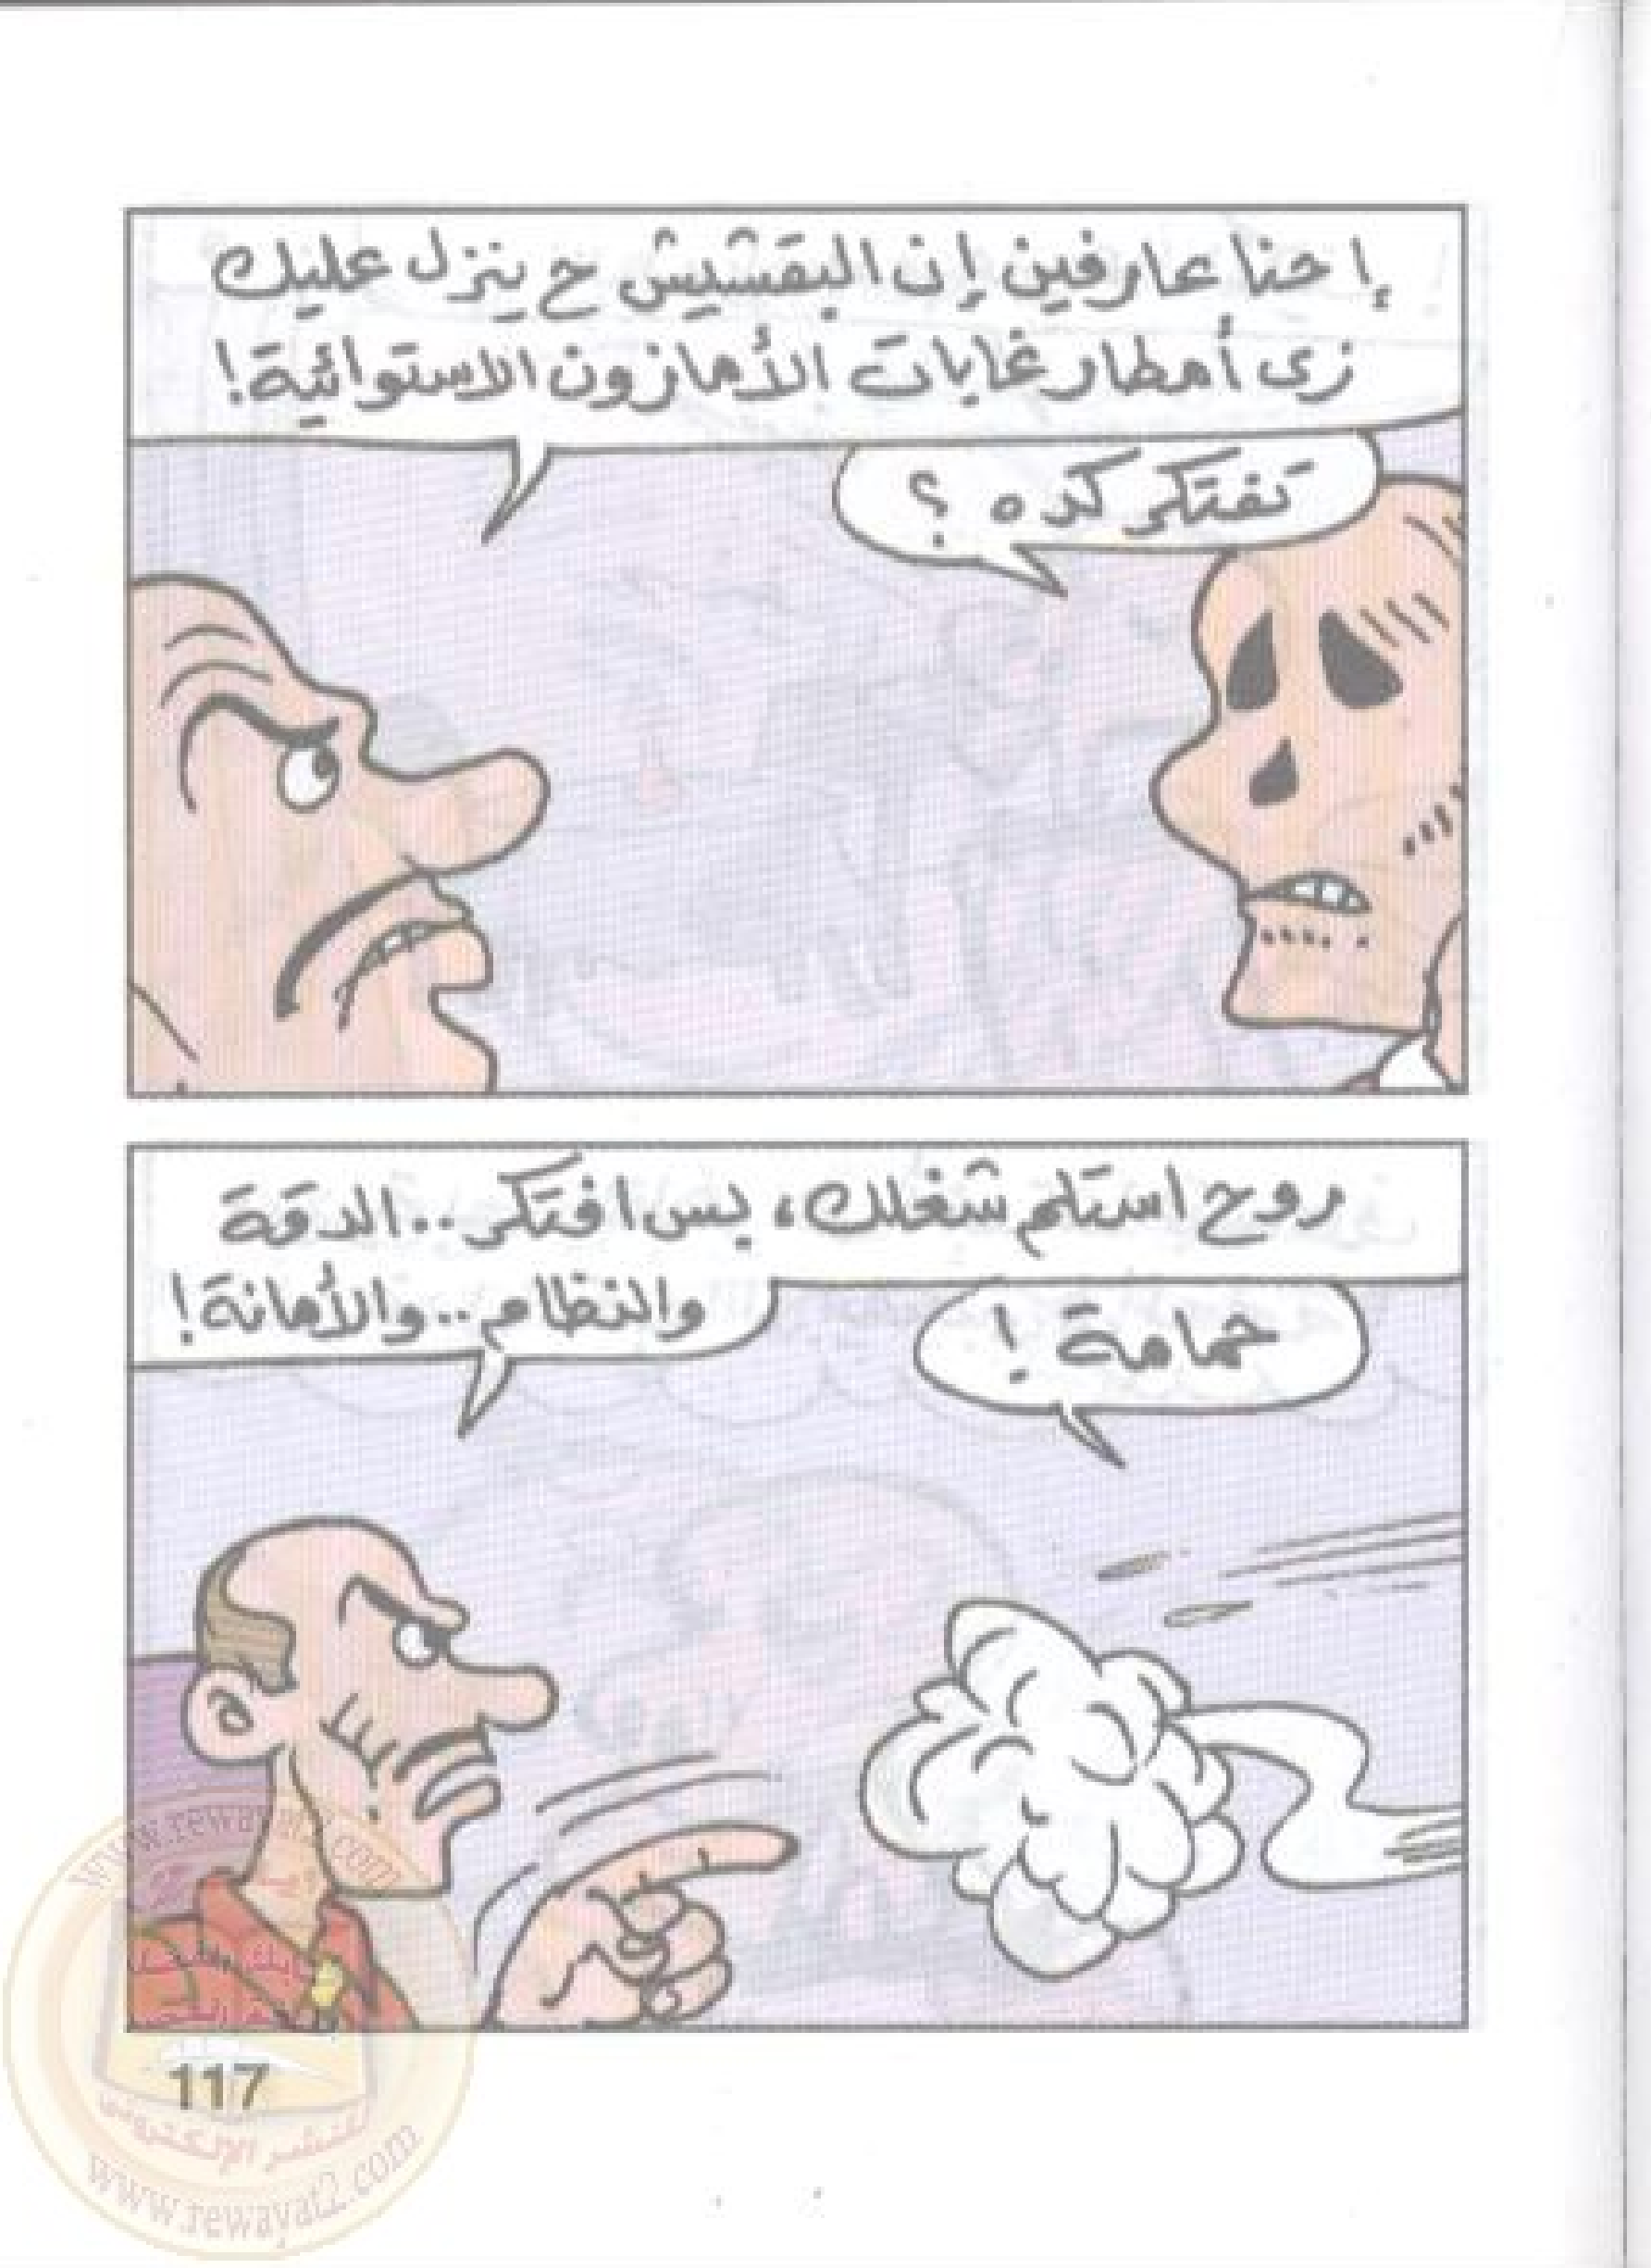 إحنا عارفين إن البقشيش ح ينزل عليك
زى أمطار غابات الأمازون الاستوائية!
تفتكر كده ؟
روح استلم شغلك، بس افتكر.. الدقة
والنظام.. والأمانة!
حمامة !
www.rewayat2.com
117
للنشر الإلكترونى
www.rewayat2.com